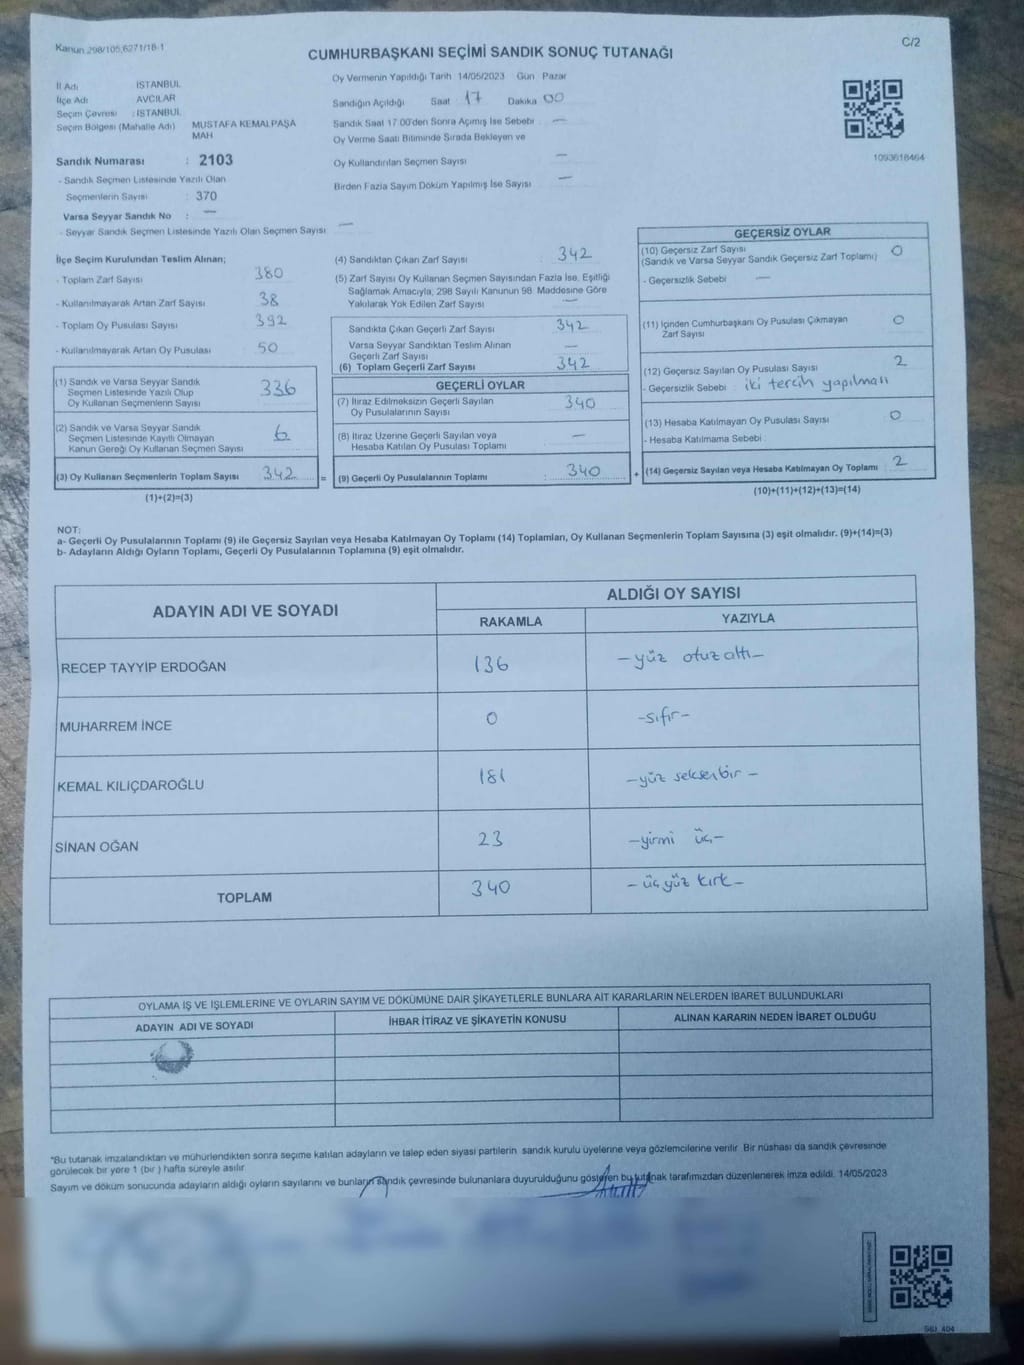 Kanun 298/105,6271/18-1
C/2
CUMHURBAŞKANI SEÇİMİ SANDIK SONUÇ TUTANAĞI
İl Adı : İSTANBUL
İlçe Adı : AVCILAR
Seçim Çevresi : İSTANBUL
Seçim Bölgesi (Mahalle Adı) MUSTAFA KEMALPAŞA MAH
Sandık Numarası : 2103
- Sandık Seçmen Listesinde Yazılı Olan
Seçmenlerin Sayısı : 370
Varsa Seyyar Sandık No : —
- Seyyar Sandık Seçmen Listesinde Yazılı Olan Seçmen Sayısı —
Oy Vermenin Yapıldığı Tarih 14/05/2023 Gün Pazar
Sandığın Açıldığı Saat 17 Dakika 00
Sandık Saat 17.00'den Sonra Açımış İse Sebebi —
Oy Verme Saati Bitiminde Sırada Bekleyen ve
Oy Kullandırılan Seçmen Sayısı —
Birden Fazla Sayım Döküm Yapılmış İse Sayısı —
1093618464
İlçe Seçim Kurulundan Teslim Alınan;
- Toplam Zarf Sayısı 380
- Kullanılmayarak Artan Zarf Sayısı 38
- Toplam Oy Pusulası Sayısı 392
- Kullanılmayarak Artan Oy Pusulası 50
(1) Sandık ve Varsa Seyyar Sandık
Seçmen Listesinde Yazılı Olup
Oy Kullanan Seçmenlerin Sayısı 336
(2) Sandık ve Varsa Seyyar Sandık
Seçmen Listesinde Kayıtlı Olmayan
Kanun Gereği Oy Kullanan Seçmen Sayısı 6
(3) Oy Kullanan Seçmenlerin Toplam Sayısı 342 =
(1)+(2)=(3)
(4) Sandıktan Çıkan Zarf Sayısı : 342
(5) Zarf Sayısı Oy Kullanan Seçmen Sayısından Fazla İse, Eşitliği
Sağlamak Amacıyla, 298 Sayılı Kanunun 98. Maddesine Göre
Yakılarak Yok Edilen Zarf Sayısı —
Sandıkta Çıkan Geçerli Zarf Sayısı 342
Varsa Seyyar Sandıktan Teslim Alınan
Geçerli Zarf Sayısı —
(6) Toplam Geçerli Zarf Sayısı 342
GEÇERLİ OYLAR
(7) İtiraz Edilmeksizin Geçerli Sayılan
Oy Pusulalarının Sayısı 340
(8) İtiraz Üzerine Geçerli Sayılan veya
Hesaba Katılan Oy Pusulası Toplamı —
(9) Geçerli Oy Pusulalarının Toplamı : 340 +
GEÇERSİZ OYLAR
(10) Geçersiz Zarf Sayısı
(Sandık ve Varsa Seyyar Sandık Geçersiz Zarf Toplamı) 0
- Geçersizlik Sebebi —
(11) İçinden Cumhurbaşkanı Oy Pusulası Çıkmayan
Zarf Sayısı 0
(12) Geçersiz Sayılan Oy Pusulası Sayısı 2
- Geçersizlik Sebebi : iki tercih yapılması
(13) Hesaba Katılmayan Oy Pusulası Sayısı 0
- Hesaba Katılmama Sebebi :
(14) Geçersiz Sayılan veya Hesaba Katılmayan Oy Toplamı 2
(10)+(11)+(12)+(13)=(14)
NOT:
a- Geçerli Oy Pusulalarının Toplamı (9) ile Geçersiz Sayılan veya Hesaba Katılmayan Oy Toplamı (14) Toplamları, Oy Kullanan Seçmenlerin Toplam Sayısına (3) eşit olmalıdır. (9)+(14)=(3)
b- Adayların Aldığı Oyların Toplamı, Geçerli Oy Pusulalarının Toplamına (9) eşit olmalıdır.
ADAYIN ADI VE SOYADI
ALDIĞI OY SAYISI
RAKAMLA YAZIYLA
RECEP TAYYİP ERDOĞAN 136 —yüz otuzaltı—
MUHARREM İNCE 0 —sıfır—
KEMAL KILIÇDAROĞLU 181 —yüz seksenbir—
SİNAN OĞAN 23 —yirmi üç—
TOPLAM 340 —üçyüz kırk—
OYLAMA İŞ VE İŞLEMLERİNE VE OYLARIN SAYIM VE DÖKÜMÜNE DAİR ŞİKAYETLERLE BUNLARA AİT KARARLARIN NELERDEN İBARET BULUNDUKLARI
ADAYIN ADI VE SOYADI İHBAR İTİRAZ VE ŞİKAYETİN KONUSU ALINAN KARARIN NEDEN İBARET OLDUĞU
*Bu tutanak imzalandıktan ve mühürlendikten sonra seçime katılan adayların ve talep eden siyasi partilerin sandık kurulu üyelerine veya gözlemcilerine verilir. Bir nüshası da sandık çevresinde
görülecek bir yere 1 (bir) hafta süreyle asılır.
Sayım ve döküm sonucunda adayların aldığı oyların sayılarını ve bunların sandık çevresinde bulunanlara duyurulduğunu gösteren bu tutanak tarafımızdan düzenlenerek imza edildi. 14/05/2023